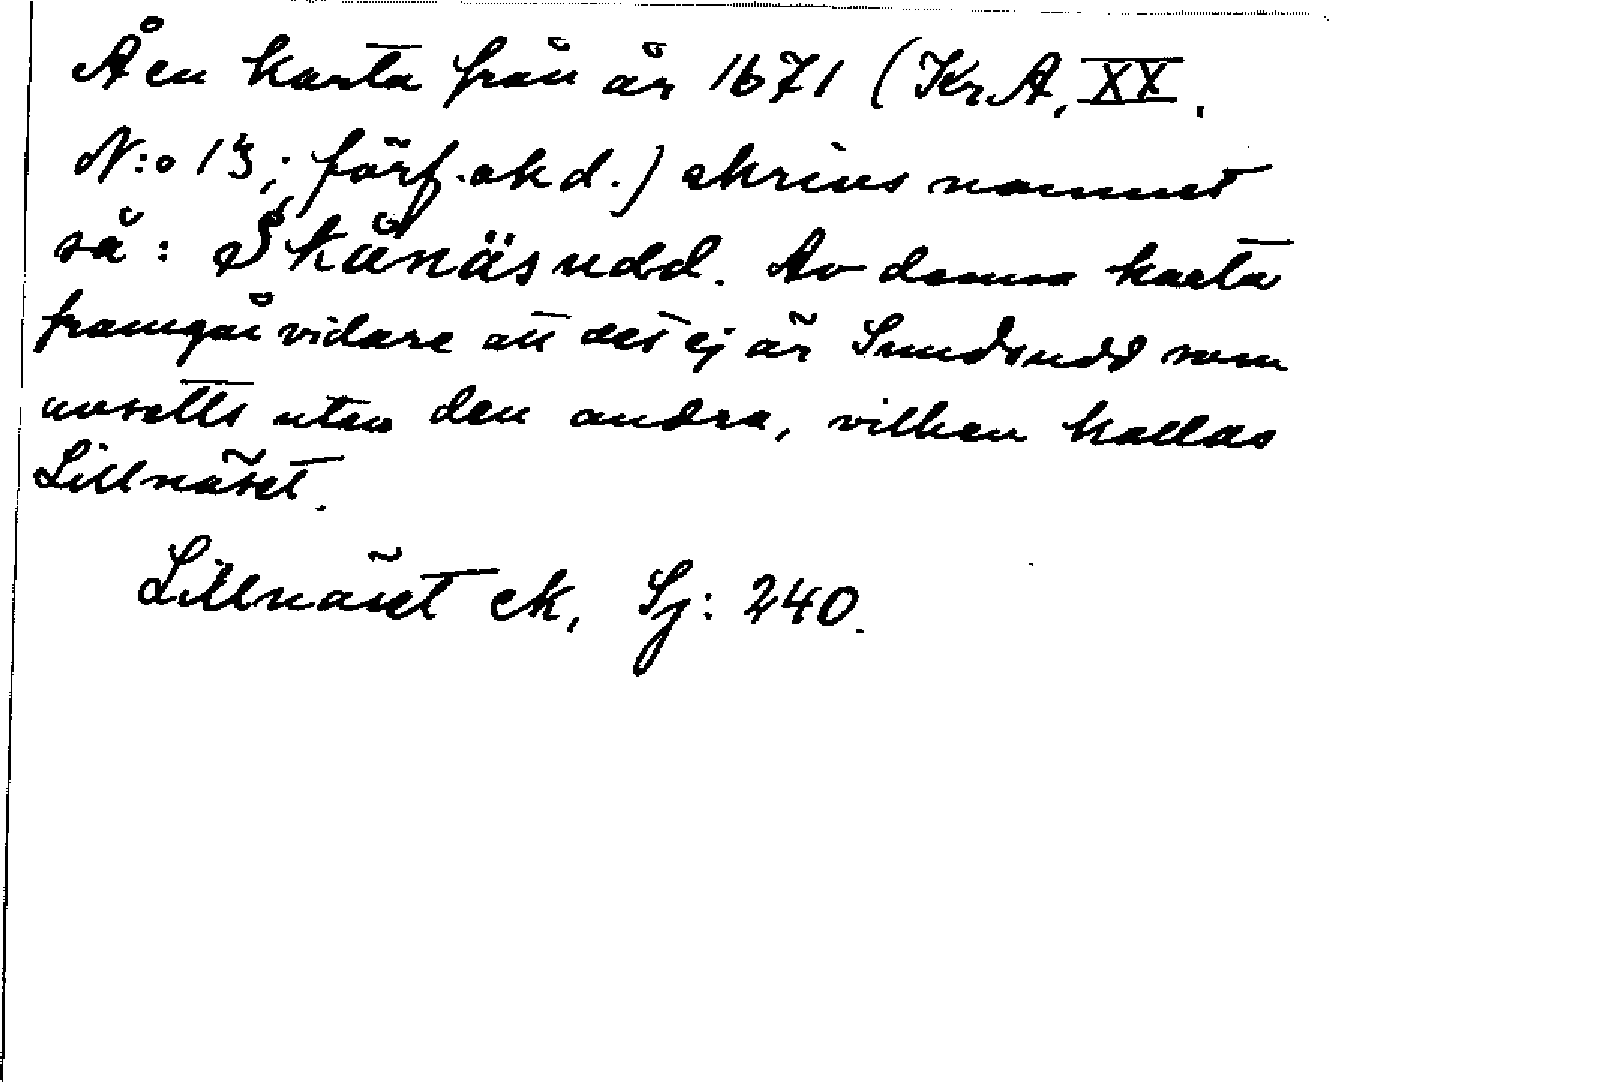 Å en karta från år 1671 (Kr.A. XX.
N:o 13; förf. okd.) skrives namnet
så: Skånäsudd. Av denna karta
framgår vidare att det ej är Sundsudd som
avsetts utan den andra, vilken kallas
Lillnäset.
Lillnäset ek. Sj: 240.